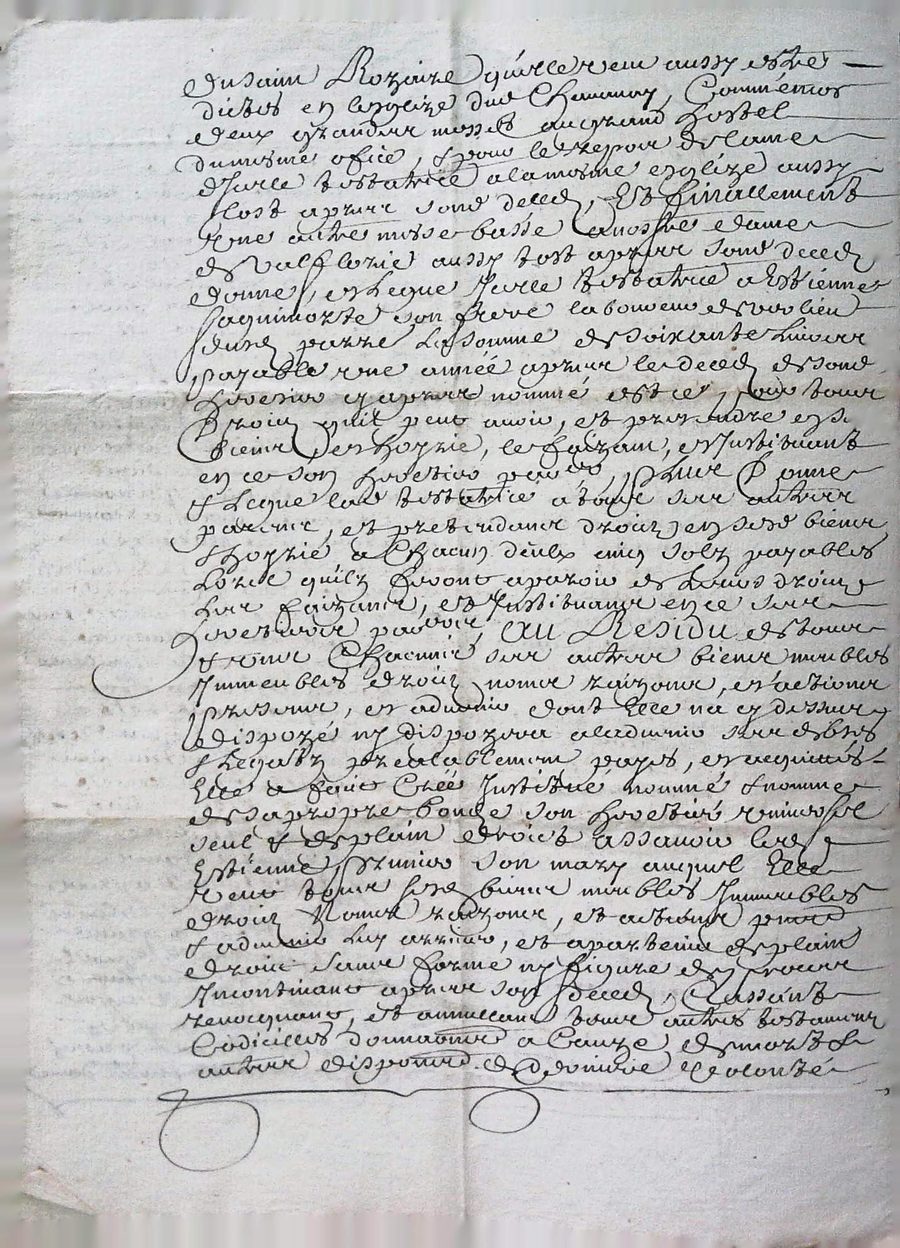 du saint Rozaire qu'elle veut aussy estre
dictes en lesglize dud Chaumon, Comme mes
deux grandes messes au grand hostel
du mesme ofice, & pour le repos de lame
dicelle testatrice a la mesme esglize aussy
tost apres sond deced, Et finallement
une autre messe basse a nostre dame
de valflorie aussy tost apres sond deced
donne, et legue Icelle testatrice a Estienne
son frere laboureur dud lieu
la somme de soixante livres
payable une année apres le deced de sond
heretier cy apres nommé et ce, pour tous
droicz quil peut avoir, et pretendre en sesd
biens & hoyrie, le faizant, et Instituant
en ce son heretier par, plus donne
& legue lad testatrice a tous ses autres
parens, et pretendans droicz en sesd biens
& hoyrie a Chacun deulx cinq solz payables
lors quilz feront aparoir de leurs droicz
les faizans, et Instituans en ce ses
heretiers, Au Residu de tous
& uns Chacuns ses autres biens meubles
Immeubles droicz noms raizons, et actions
presens, et advenir dont Elle na cy dessus
dispozé ny dispozera a ladvenir ses debtes
& legatz prealablement payes, et acquités
Elle a faict Créé Institué nommé & nomme
de sa propre bouche son heretier universel
seul & de plain droict assavoir led
Estienne son mary auquel Elle
veut tous sesd biens meubles Immeubles
droicz Noms raizons, et actions
& advenir luy arriver, et apartenir de plain
droict sans forme ny figure de proces
Incontinant apres son deced, Cassant
revoquant, et annullant tous autres testamens
Codicilles donnaons a Cauze de mort &
autres dispoons de derniere volonté